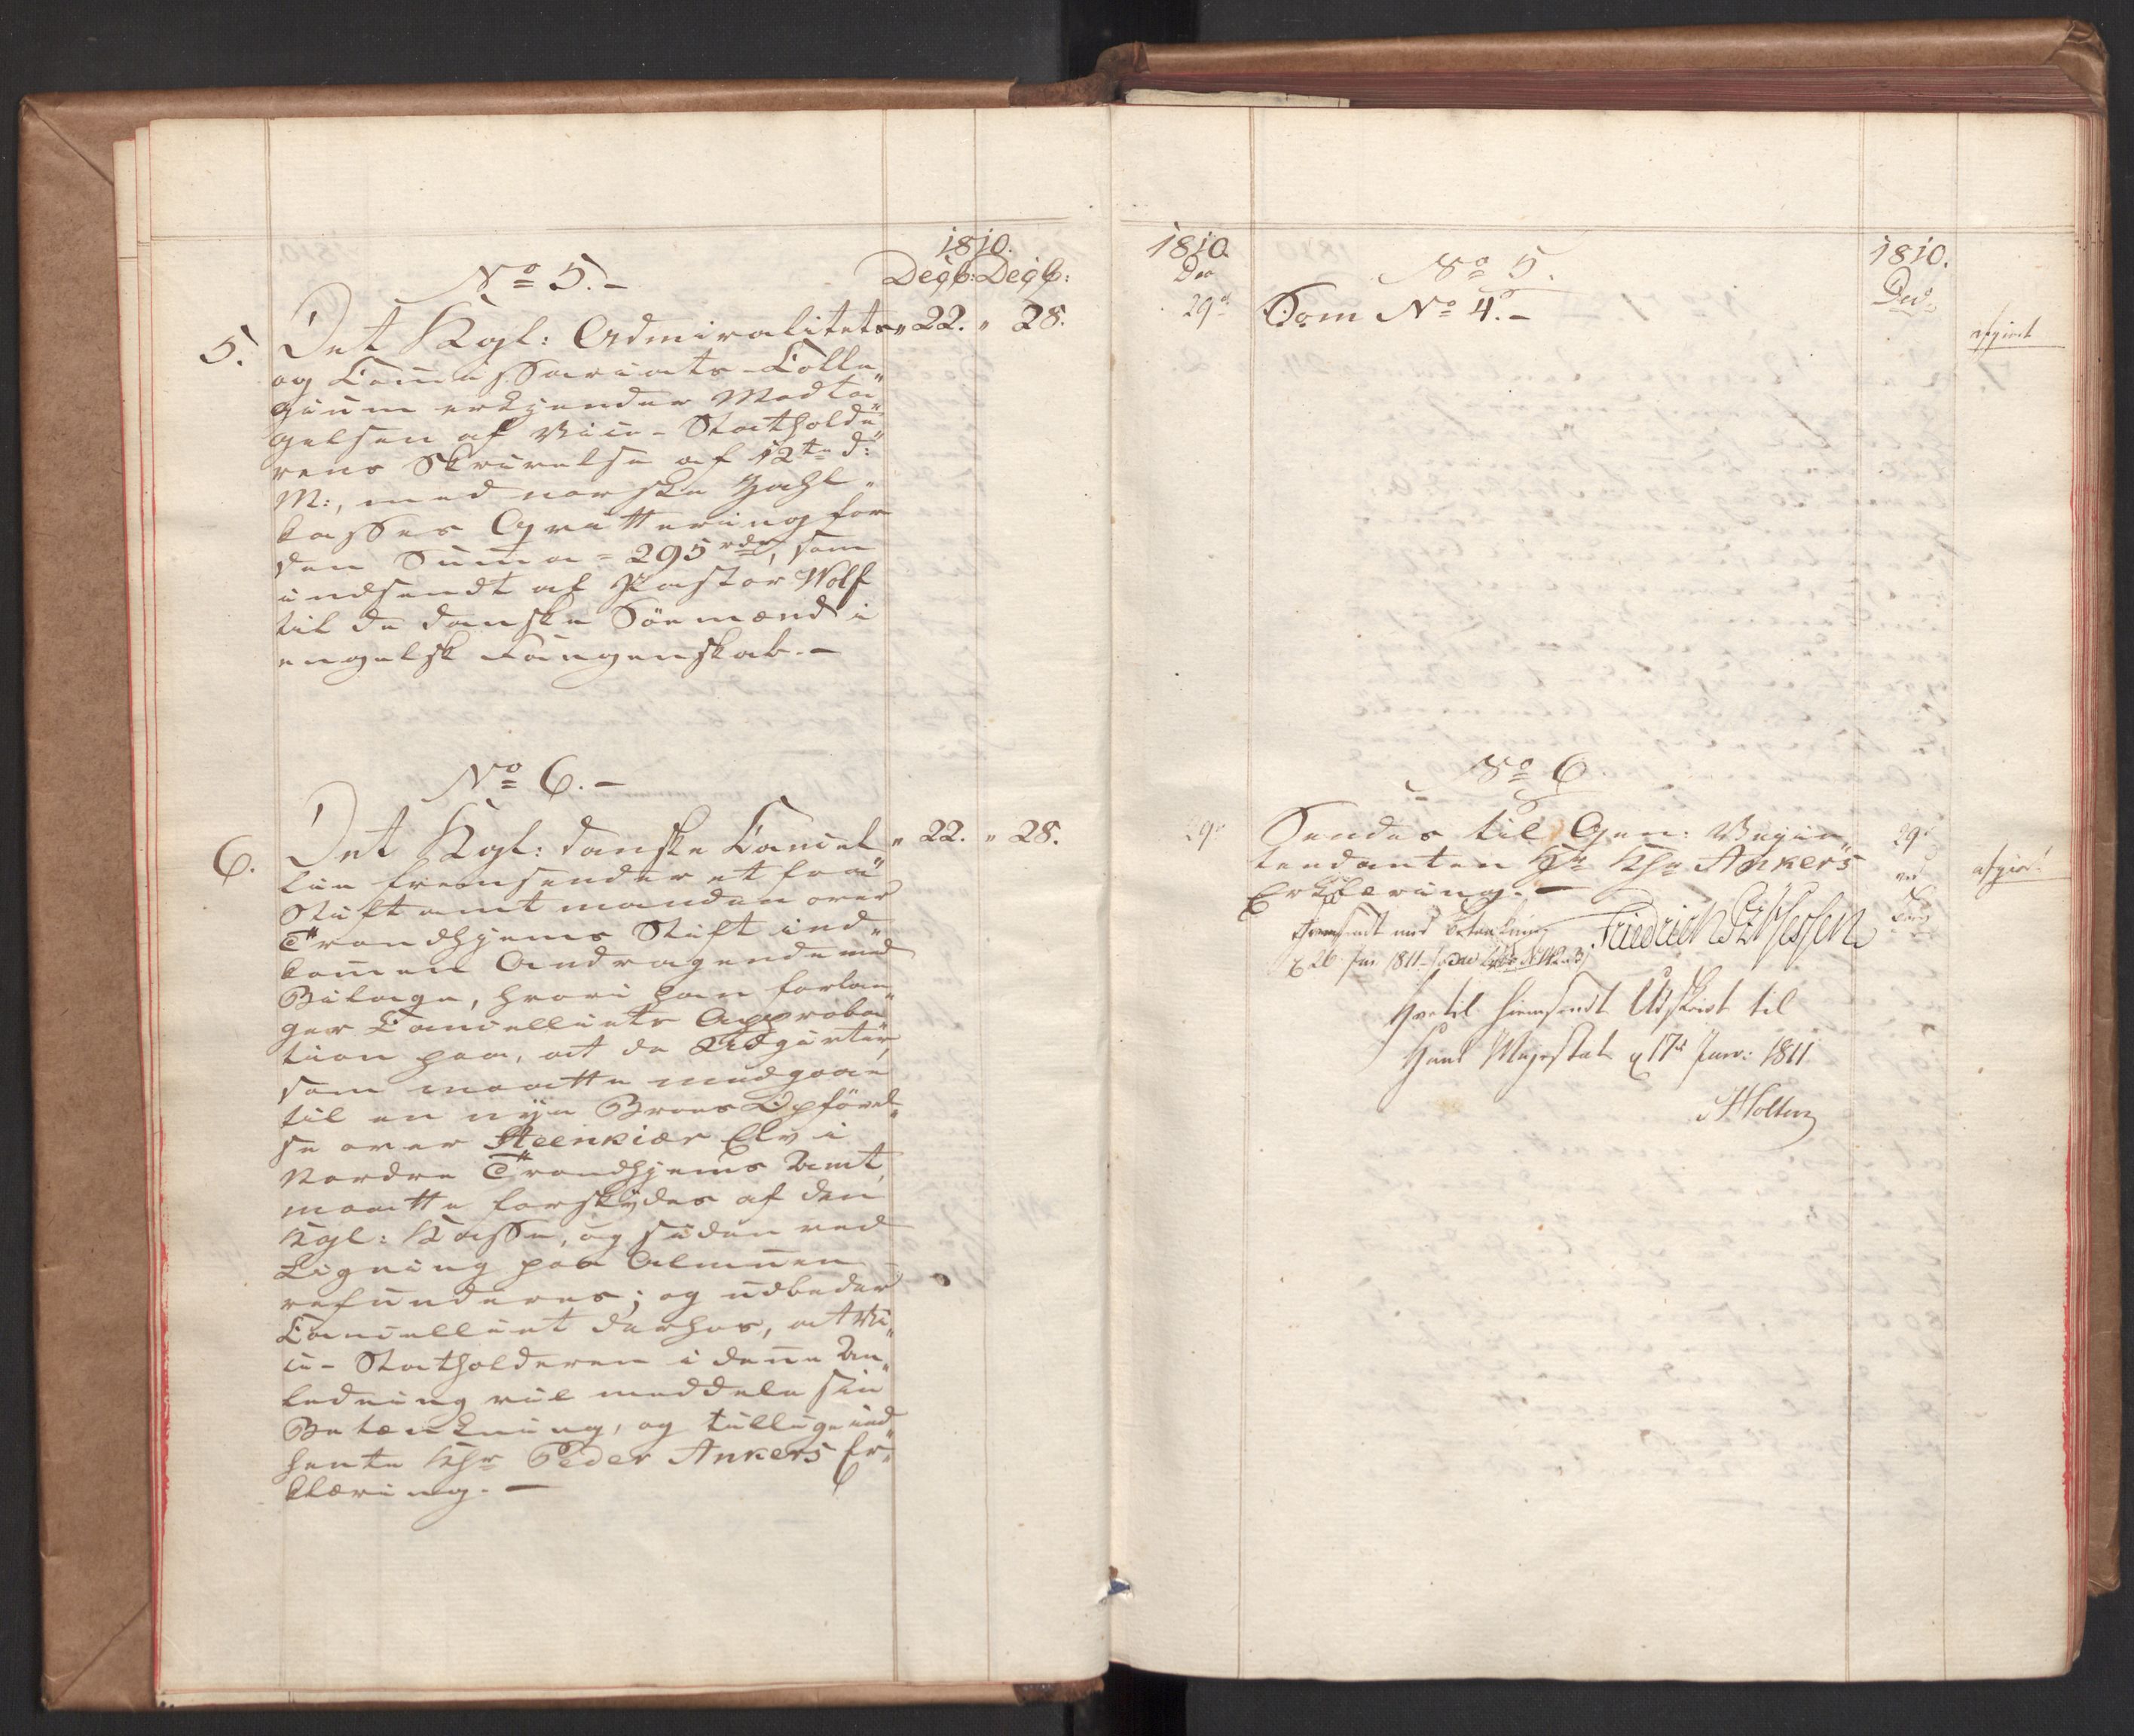 1810.
No 5.- Decb: Decb:
5. Det Kgl: Admiralitets „ 22. „ 28.
og Com̄issariats-Colle„
gium erkjender Modta„
gelsen af Vice-Statholde„
rens Skrivelse af 12te d:
M:, med norske Zahl„
kasses Qvittering for
den Sum̄a = 295 rdr, som
indsendt af Pastor Wolf
til de danske Söemænd i
engelsk Fangenskab.-
No 6.-
6. Det Kgl: danske Cancel„ „ 22. „ 28.
lie fremsender et fra
Stiftamtmanden over
Trondhjems Stift ind„
kom̄en Andragende med
Bilage, hvori han forlan„
ger Cancelliets Approba„
tion paa, at de Udgivter,
som maatte medgaae
til en nÿe Broes Opförel„
se over Steenkiær Elv i
Nordre Trondhjems Amt,
maatte forskydes af den
Kgl: Kasse, og siden ved
Ligning paa Almuen
refunderes; og udbeder
Cancelliet derhos, at Vi„
ce-Statholderen i denne An„
ledning vil meddele sin
Betænkning, og tillige ind„
hente Khr Peder Ankers Er„
klæring.-
1810.
No 5.
1810.
29d Som No 4.-
afgjort
No 6
29d Sendes til Gen: Vejin„
tendanten Hr Khr Ankers
Erklæring.-
29d
afgiort
Fremsendt med Betænkning
26 Jan 1811
Friedrich PzHessen
Hertil hiemsendt Udskrivt til
Hans Majestæt 17de Janv: 1811.
Holten